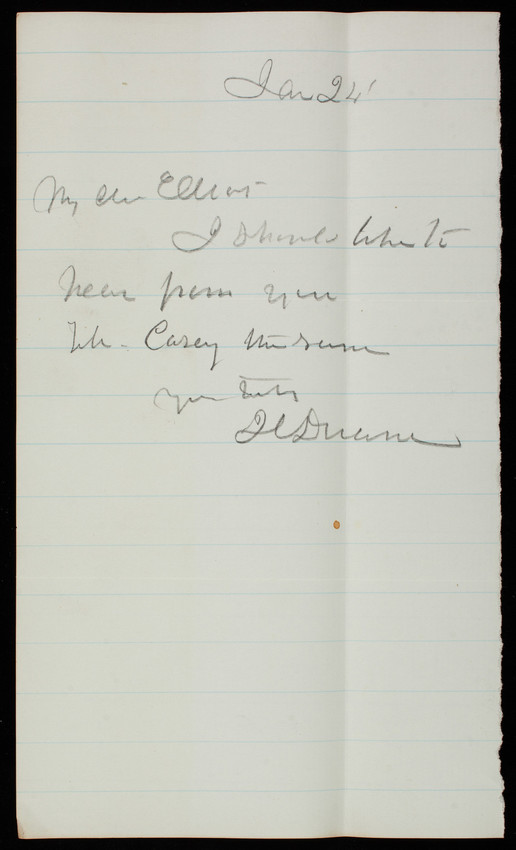 Jan 24
My dear Elliot
I should like to
hear from you
Tell Casey the same
yours truly
J C Duane